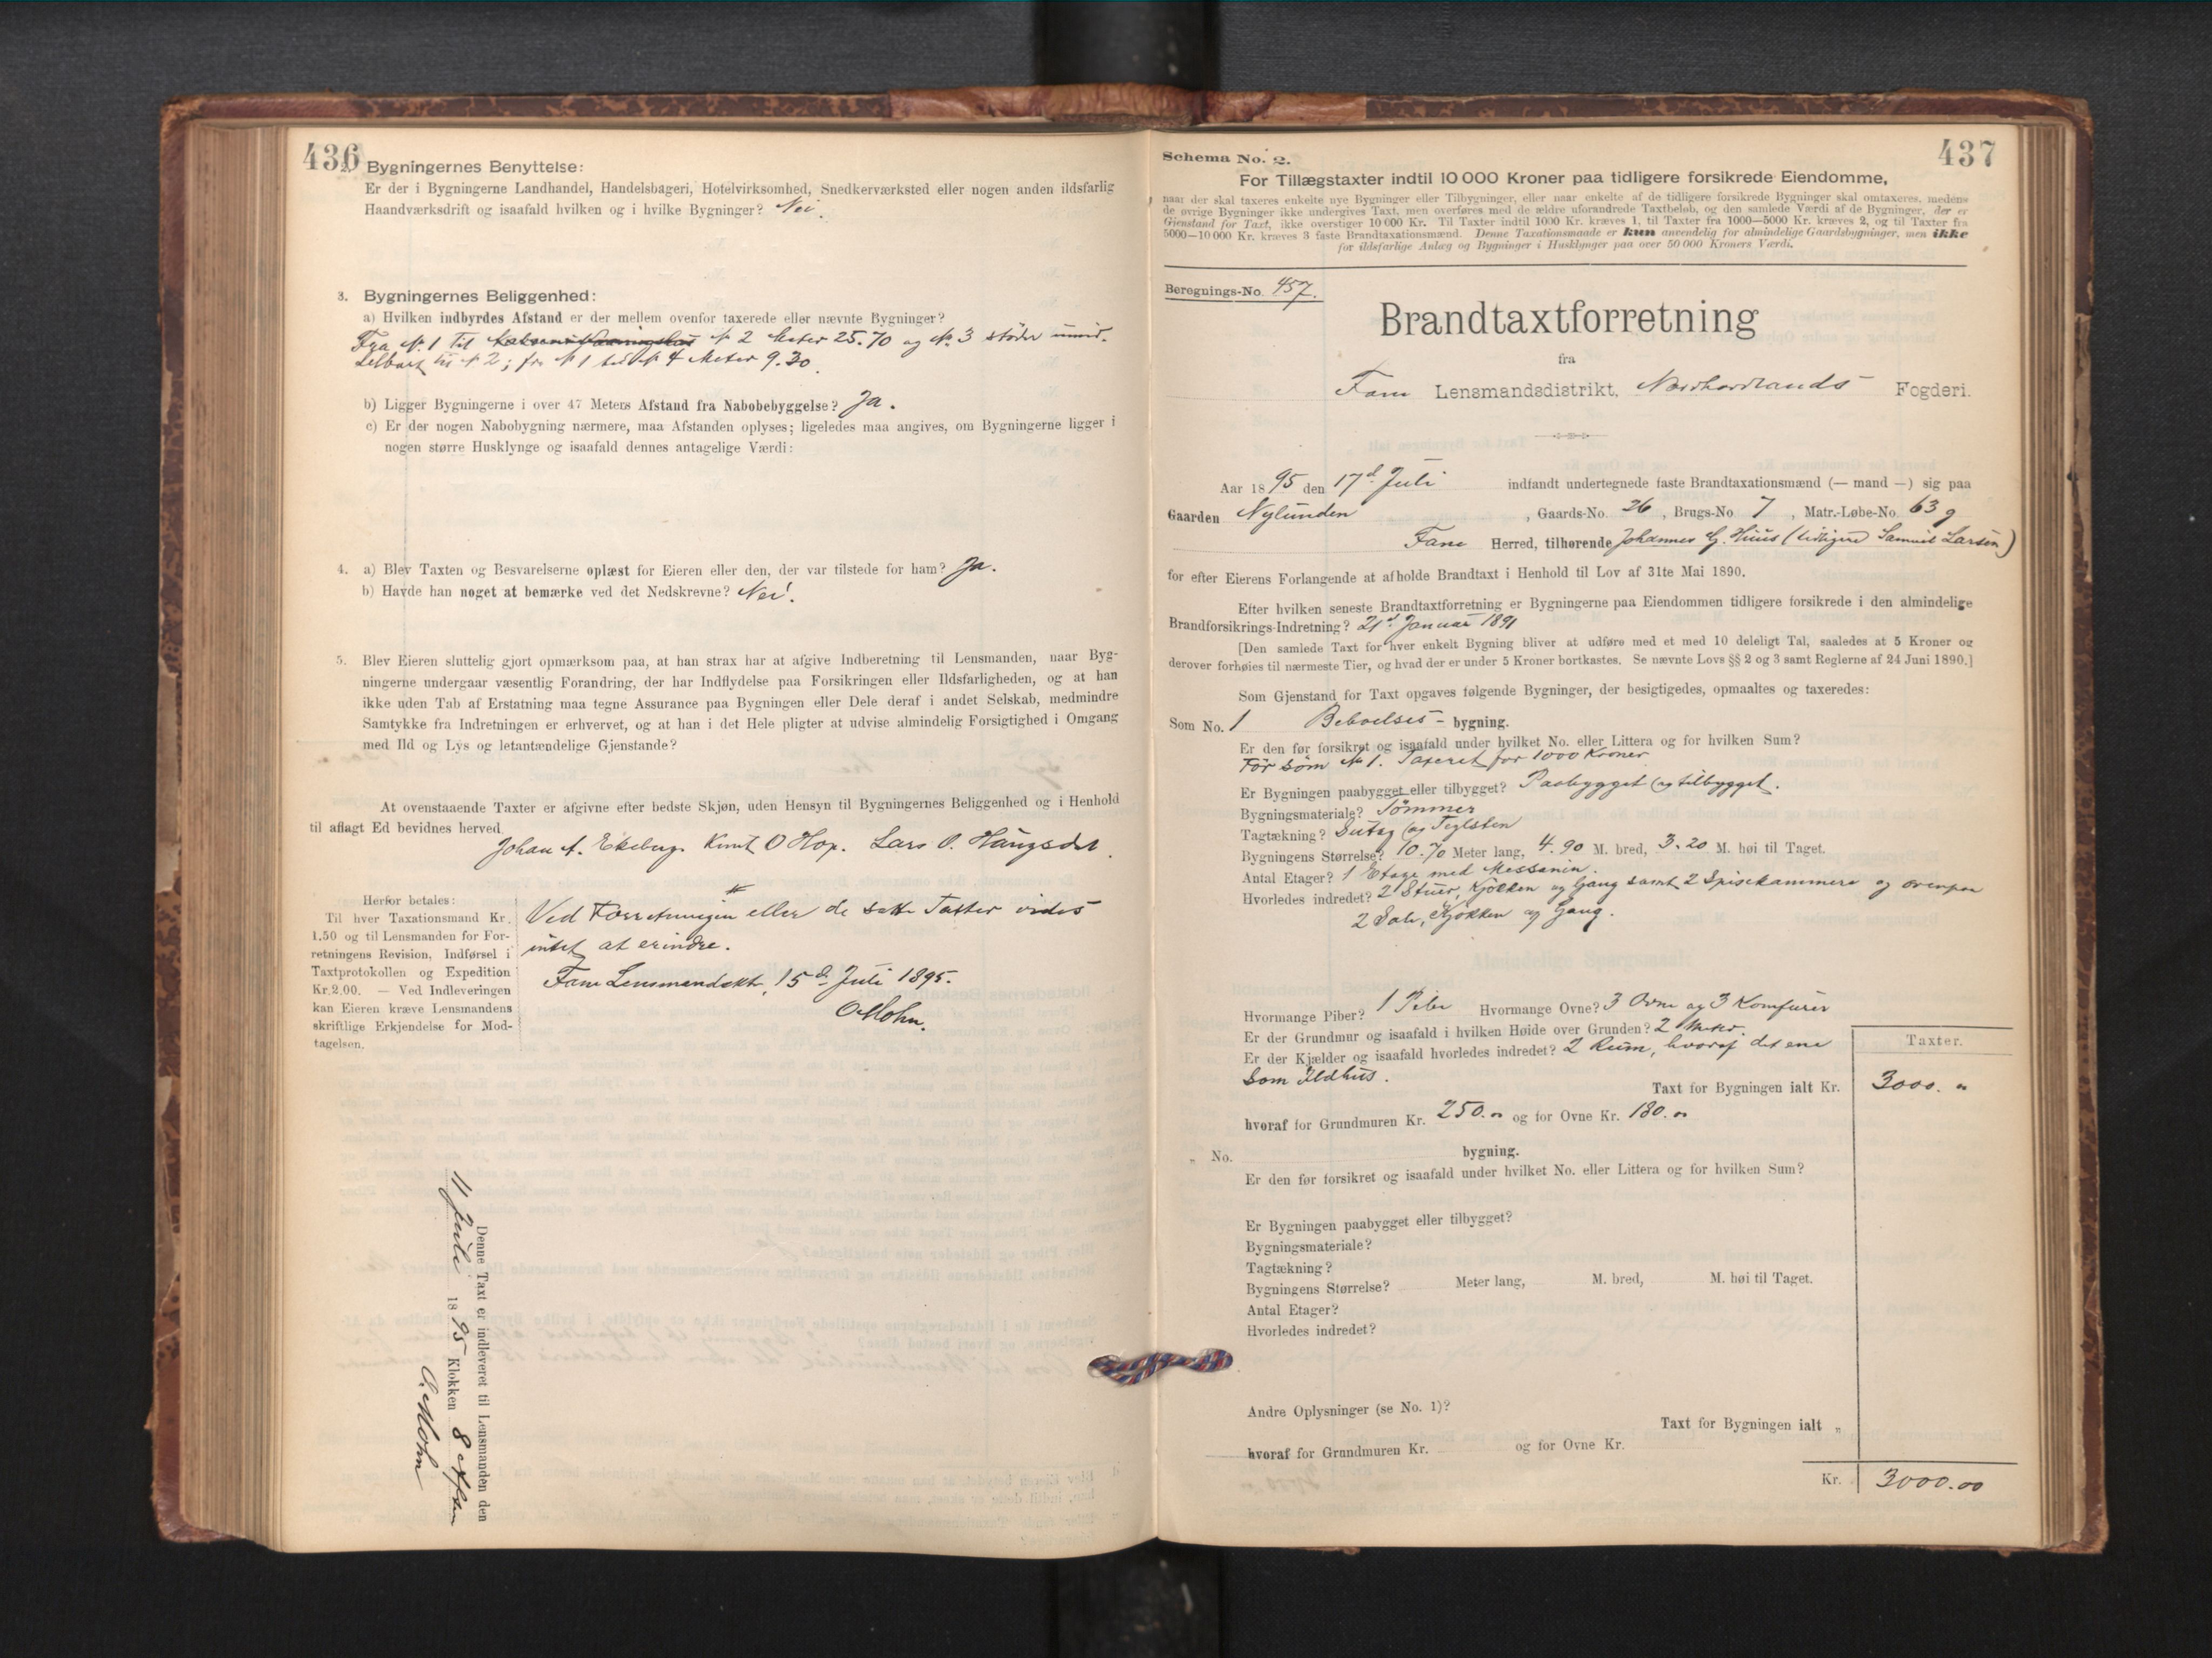 436
2. Bygningernes Benyttelse:
Er der i Bygningerne Landhandel, Handelsbageri, Hotelvirksomhed, Snedkerværksted eller nogen anden ildsfarlig
Haandværksdrift og isaafald hvilken og i hvilke Bygninger? Nei.
3. Bygningernes Beliggenhed:
a) Hvilken indbyrdes Afstand er der mellem ovenfor taxerede eller nævnte Bygninger?
Fra N. 1 til N 2 Meter 25.70 og N. 3 støder umid-
delbart til N 2; fra N 1 til N 4 Meter 9.30.
b) Ligger Bygningerne i over 47 Meters Afstand fra Nabobebyggelse? Ja.
c) Er der nogen Nabobygning nærmere, maa Afstanden oplyses; ligeledes maa angives, om Bygningerne ligger i
nogen større Husklynge og isaafald dennes antagelige Værdi:
4. a) Blev Taxten og Besvarelserne oplæst for Eieren eller den, der var tilstede for ham? Ja.
b) Havde han noget at bemærke ved det Nedskrevne? Nei.
5. Blev Eieren sluttelig gjort opmærksom paa, at han strax har at afgive Indberetning til Lensmanden, naar Byg-
ningerne undergaar væsentlig Forandring, der har Indflydelse paa Forsikringen eller Ildsfarligheden, og at han
ikke uden Tab af Erstatning maa tegne Assurance paa Bygningen eller Dele deraf i andet Selskab, medmindre
Samtykke fra Indretningen er erhvervet, og at han i det Hele pligter at udvise almindelig Forsigtighed i Omgang
med Ild og Lys og letantændelige Gjenstande?
At ovenstaaende Taxter er afgivne efter bedste Skjøn, uden Hensyn til Bygningernes Beliggenhed og i Henhold
til aflagt Ed bevidnes herved
Johan A. Ekeberg. Knut O Hop. Lars O. Haugsdal.
Herfor betales:
Til hver Taxationsmand Kr.
1,50 og til Lensmanden for For-
retningens Revision, Indførsel i
Taxtprotokollen og Expedition
Kr. 2.00. — Ved Indleveringen
kan Eieren kræve Lensmandens
skriftlige Erkjendelse for Mod-
tagelsen.
Ved Forretningen eller de satte Taxter vides
intet at erindre.
Fane Lensmandskt, 15d Juli 1895.
O Mohn.
Denne Taxt er indleveret til Lensmanden den
11 Juli 1895 Klokken 8 Aften
O. Mohn
437
Schema No. 2.
For Tillægstaxter indtil 10 000 Kroner paa tidligere forsikrede Eiendomme,
naar der skal taxeres enkelte nye Bygninger eller Tilbygninger, eller naar enkelte af de tidligere forsikrede Bygninger skal omtaxeres, medens
de øvrige Bygninger ikke undergives Taxt, men overføres med de ældre uforandrede Taxtbeløb, og den samlede Værdi af de Bygninger, der er
Gjenstand for Taxt, ikke overstiger 10 000 Kr. Til Taxter indtil 1000 Kr. kræves 1, til Taxter fra 1000—5000 Kr. kræves 2, og til Taxter fra
5000—10 000 Kr. kræves 3 faste Brandtaxationsmænd. Denne Taxationsmaade er kun anvendelig for almindelige Gaardsbygninger, men ikke
for ildsfarlige Anlæg og Bygninger i Husklynger paa over 50 000 Kroners Værdi.
Beregnings-No. 457.
Brandtaxtforretning
fra
Fane Lensmandsdistrikt, Nordhordlands Fogderi.
Aar 1895 den 17d Juli indfandt undertegnede faste Brandtaxationsmænd (— mand —) sig paa
Gaarden Nylunden, Gaards-No. 26, Brugs-No 7, Matr.-Løbe-No. 63 g
Fane Herred, tilhørende Johannes G. Huus (tidligere Samuel Larsen)
for efter Eierens Forlangende at afholde Brandtaxt i Henhold til Lov af 31te Mai 1890.
Efter hvilken seneste Brandtaxtforretning er Bygningerne paa Eiendommen tidligere forsikrede i den almindelige
Brandforsikrings-Indretning? 21d Januar 1891
[Den samlede Taxt for hver enkelt Bygning bliver at udføre med et med 10 deleligt Tal, saaledes at 5 Kroner og
derover forhøies til nærmeste Tier, og hvad der er under 5 Kroner bortkastes. Se nævnte Lovs §§ 2 og 3 samt Reglerne af 24 Juni 1890.]
Som Gjenstand for Taxt opgaves følgende Bygninger, der besigtigedes, opmaaltes og taxeredes:
Som No. 1 Beboelses-bygning.
Er den før forsikret og isaafald under hvilket No. eller Littera og for hvilken Sum?
Før som N 1. Taxeret for 1000 Kroner
Er Bygningen paabygget eller tilbygget? Paabygget og tilbygget.
Bygningsmateriale? Tømmer
Tagtækning? Sutag og Teglsten
Bygningens Størrelse? 10.70 Meter lang, 4.90 M. bred, 3.20 M. høi til Taget.
Antal Etager? 1 Etage med Messanin.
Hvorledes indredet? 2 Stuer, Kjøkken og Gang samt 2 Spisekammere og ovenpaa
2 Sale, Kjøkken og Gang.
Hvormange Piber? 1 Pibe Hvormange Ovne? 3 Ovne og 3 Komfurer
Er der Grundmur og isaafald i hvilken Høide over Grunden? 2 Meter.
Er der Kjælder og isaafald hvorledes indredet? 2 Rum, hvoraf det ene
som Ildhus.
Taxter.
Taxt for Bygningen ialt Kr. 3000. "
hvoraf for Grundmuren Kr. 250.00 og for Ovne Kr. 180.00
" No. bygning.
Er den før forsikret og isaafald under hvilket No. eller Littera og for hvilken Sum?
Er Bygningen paabygget eller tilbygget?
Bygningsmateriale?
Tagtækning?
Bygningens Størrelse? Meter lang, M. bred, M. høi til Taget.
Antal Etager?
Hvorledes indredet?
Andre Oplysninger (se No. 1)?
Taxt for Bygningen ialt "
hvoraf for Grundmuren Kr. og for Ovne Kr.
Kr. 3000.00